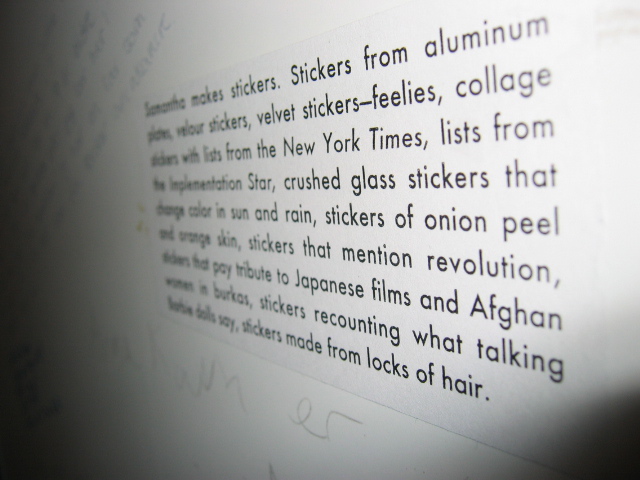 Samantha makes stickers. Stickers from aluminum
plates, velour stickers, velvet stickers–feelies, collage
stickers with lists from the New York Times, lists from
the Implementation Star, crushed glass stickers that
change color in sun and rain, stickers of onion peel
and orange skin, stickers that mention revolution,
stickers that pay tribute to Japanese films and Afghan
women in burkas, stickers recounting what talking
Barbie dolls say, stickers made from locks of hair.
er